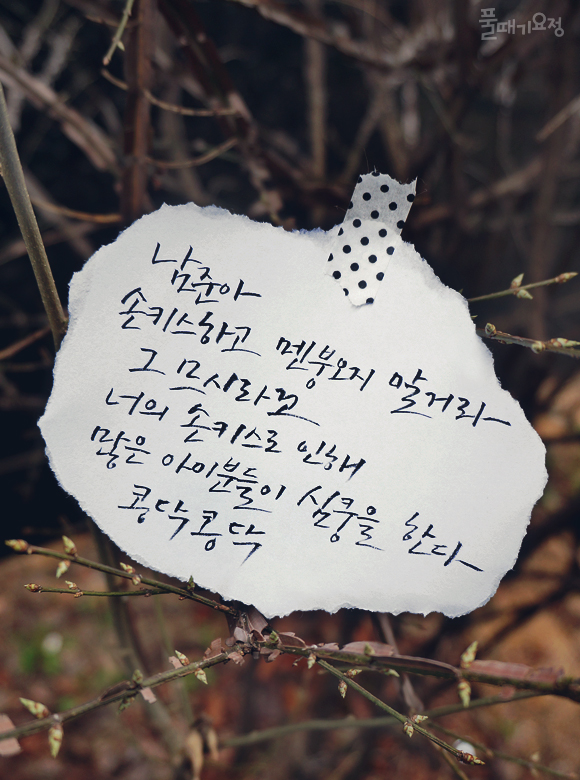 풀때기요정
남준아
손키스하고 멘붕오지 말거라
그 모시라꼬
너의 손키스로 인해
많은 아미분들이 심쿵을 한다
콩닥콩닥